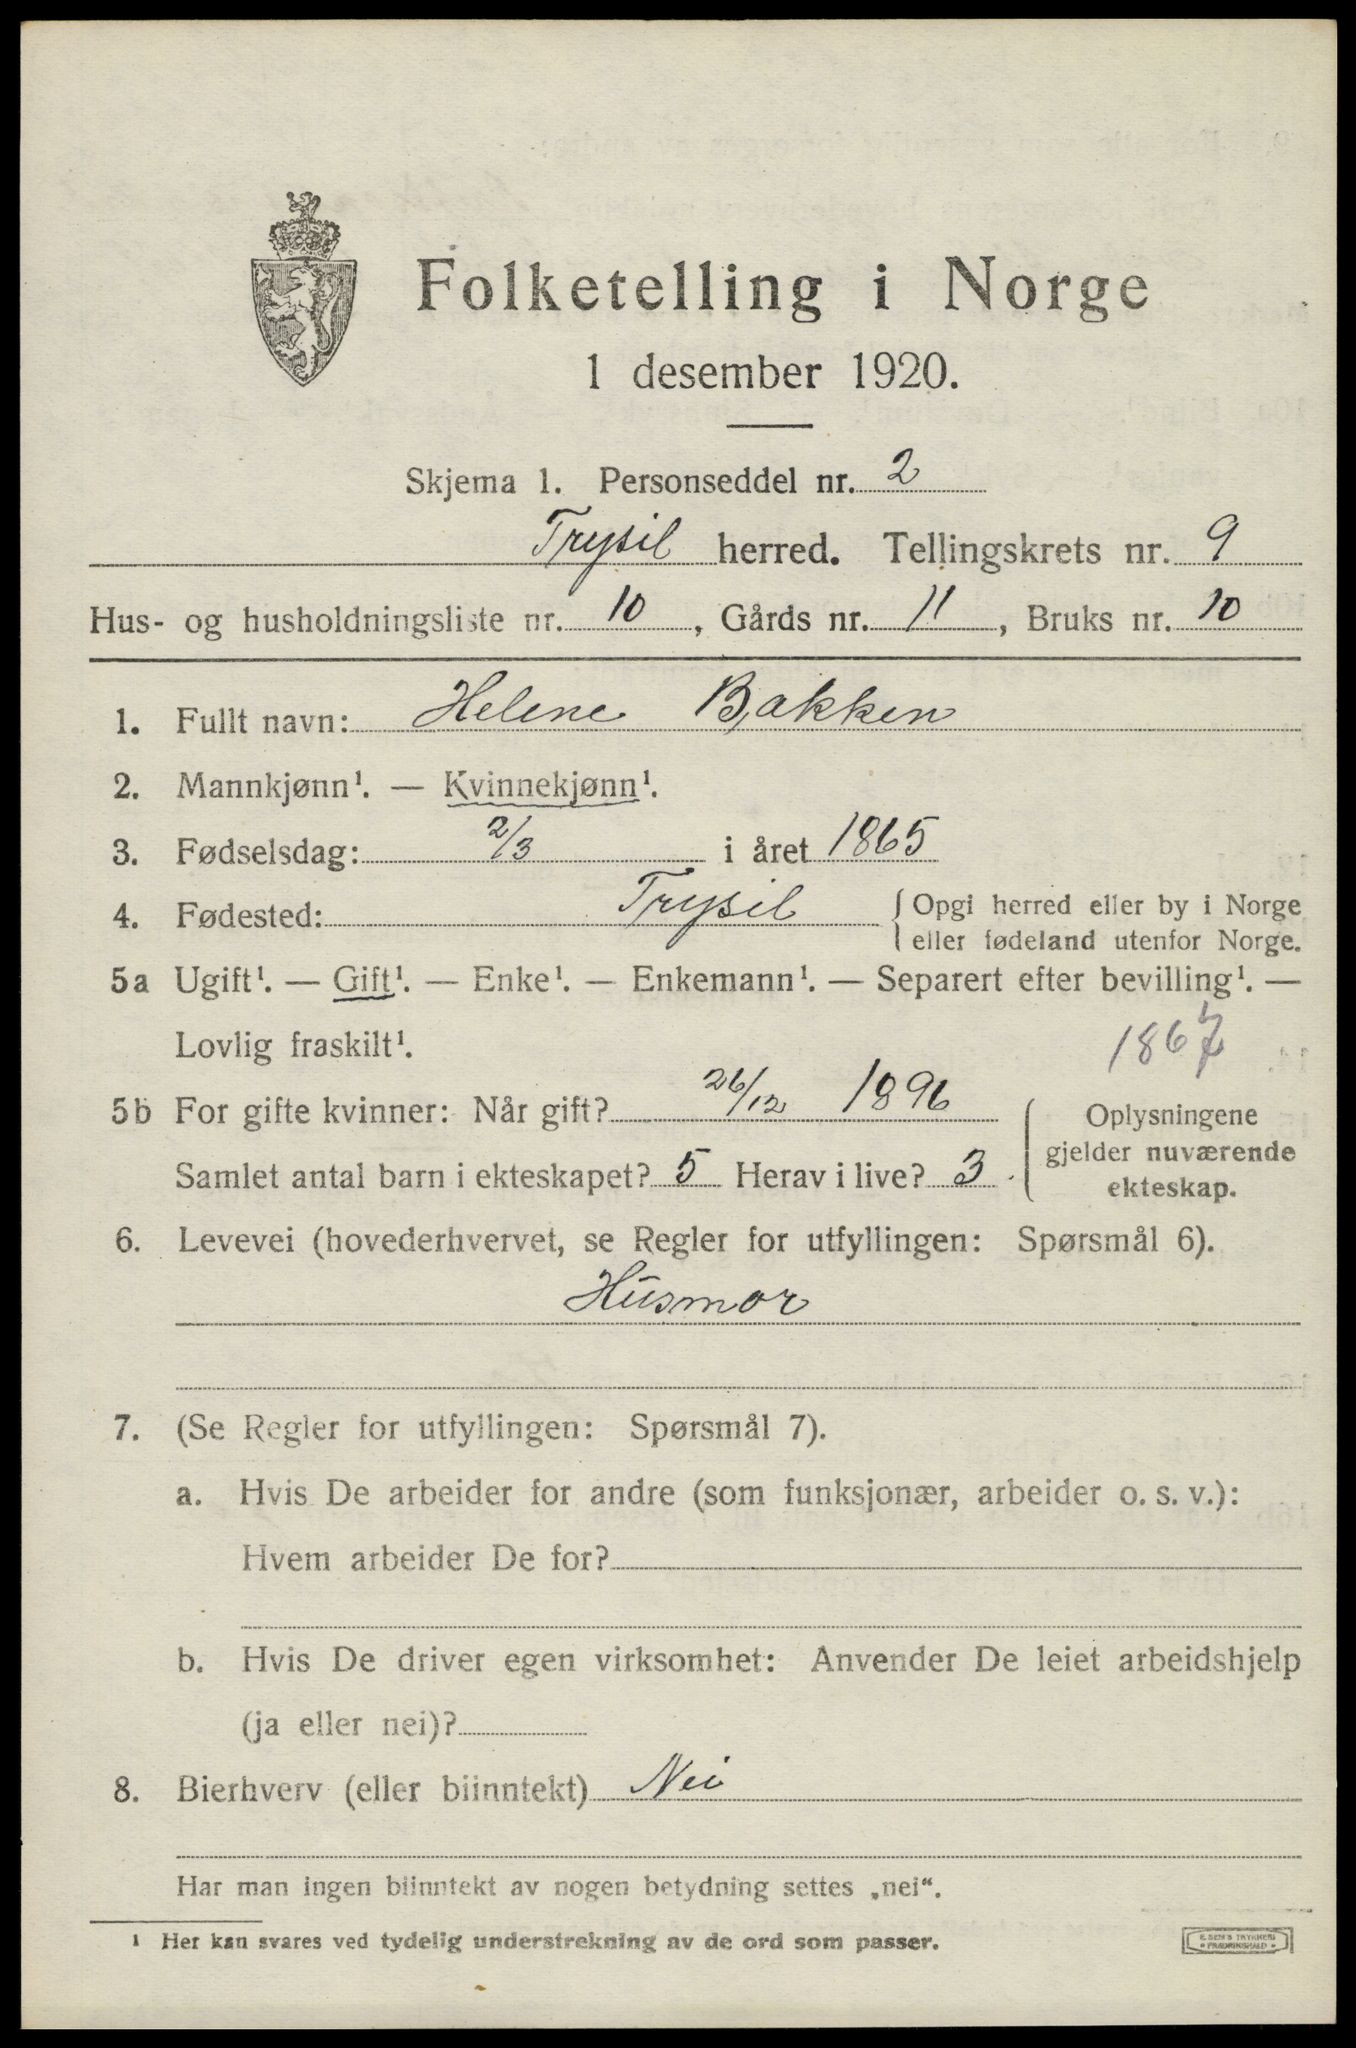 Folketelling i Norge
1 desember 1920.
Skjema 1. Personseddel nr. 2
Trysil herred. Tellingskrets nr. 9
Hus- og husholdningsliste nr. 10, Gårds nr. 11, Bruks nr. 10
1. Fullt navn: Helene Bakken
2. Mannkjønn¹. — Kvinnekjønn¹.
3. Fødselsdag: 2/3 i året 1865
4. Fødested: Trysil { Opgi herred eller by i Norge
eller fødeland utenfor Norge.
5a Ugift¹. — Gift¹. — Enke¹. — Enkemann¹. — Separert efter bevilling¹. —
Lovlig fraskilt¹.
5b For gifte kvinner: Når gift? 26/12 1896
Samlet antal barn i ekteskapet? 5 Herav i live? 3.
Oplysningene
gjelder nuværende
ekteskap.
6. Levevei (hovederhvervet, se Regler for utfyllingen: Spørsmål 6).
Husmor
7. (Se Regler for utfyllingen: Spørsmål 7).
a. Hvis De arbeider for andre (som funksjonær, arbeider o. s. v.):
Hvem arbeider De for?
b. Hvis De driver egen virksomhet: Anvender De leiet arbeidshjelp
(ja eller nei)?
8. Bierhverv (eller biinntekt) Nei
Har man ingen biinntekt av nogen betydning settes „nei“.
¹ Her kan svares ved tydelig understrekning av de ord som passer.